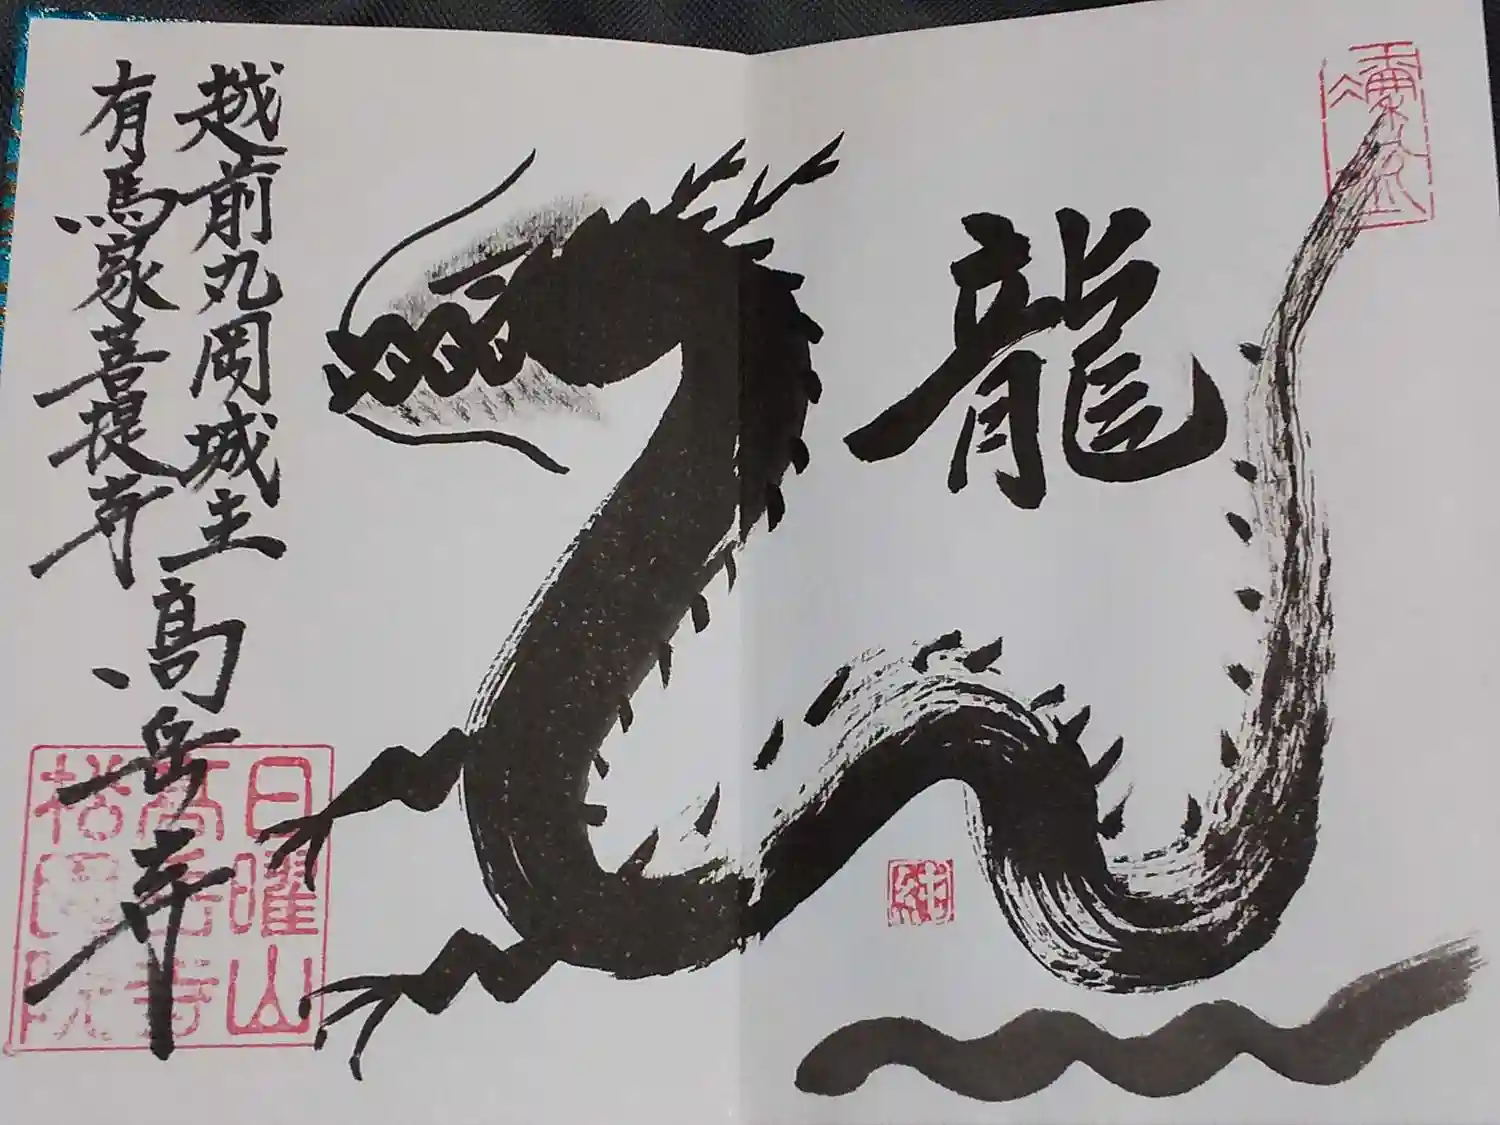 龍
越前丸岡城主
有馬家菩提寺
高岳寺
日曜山
高岳寺
純